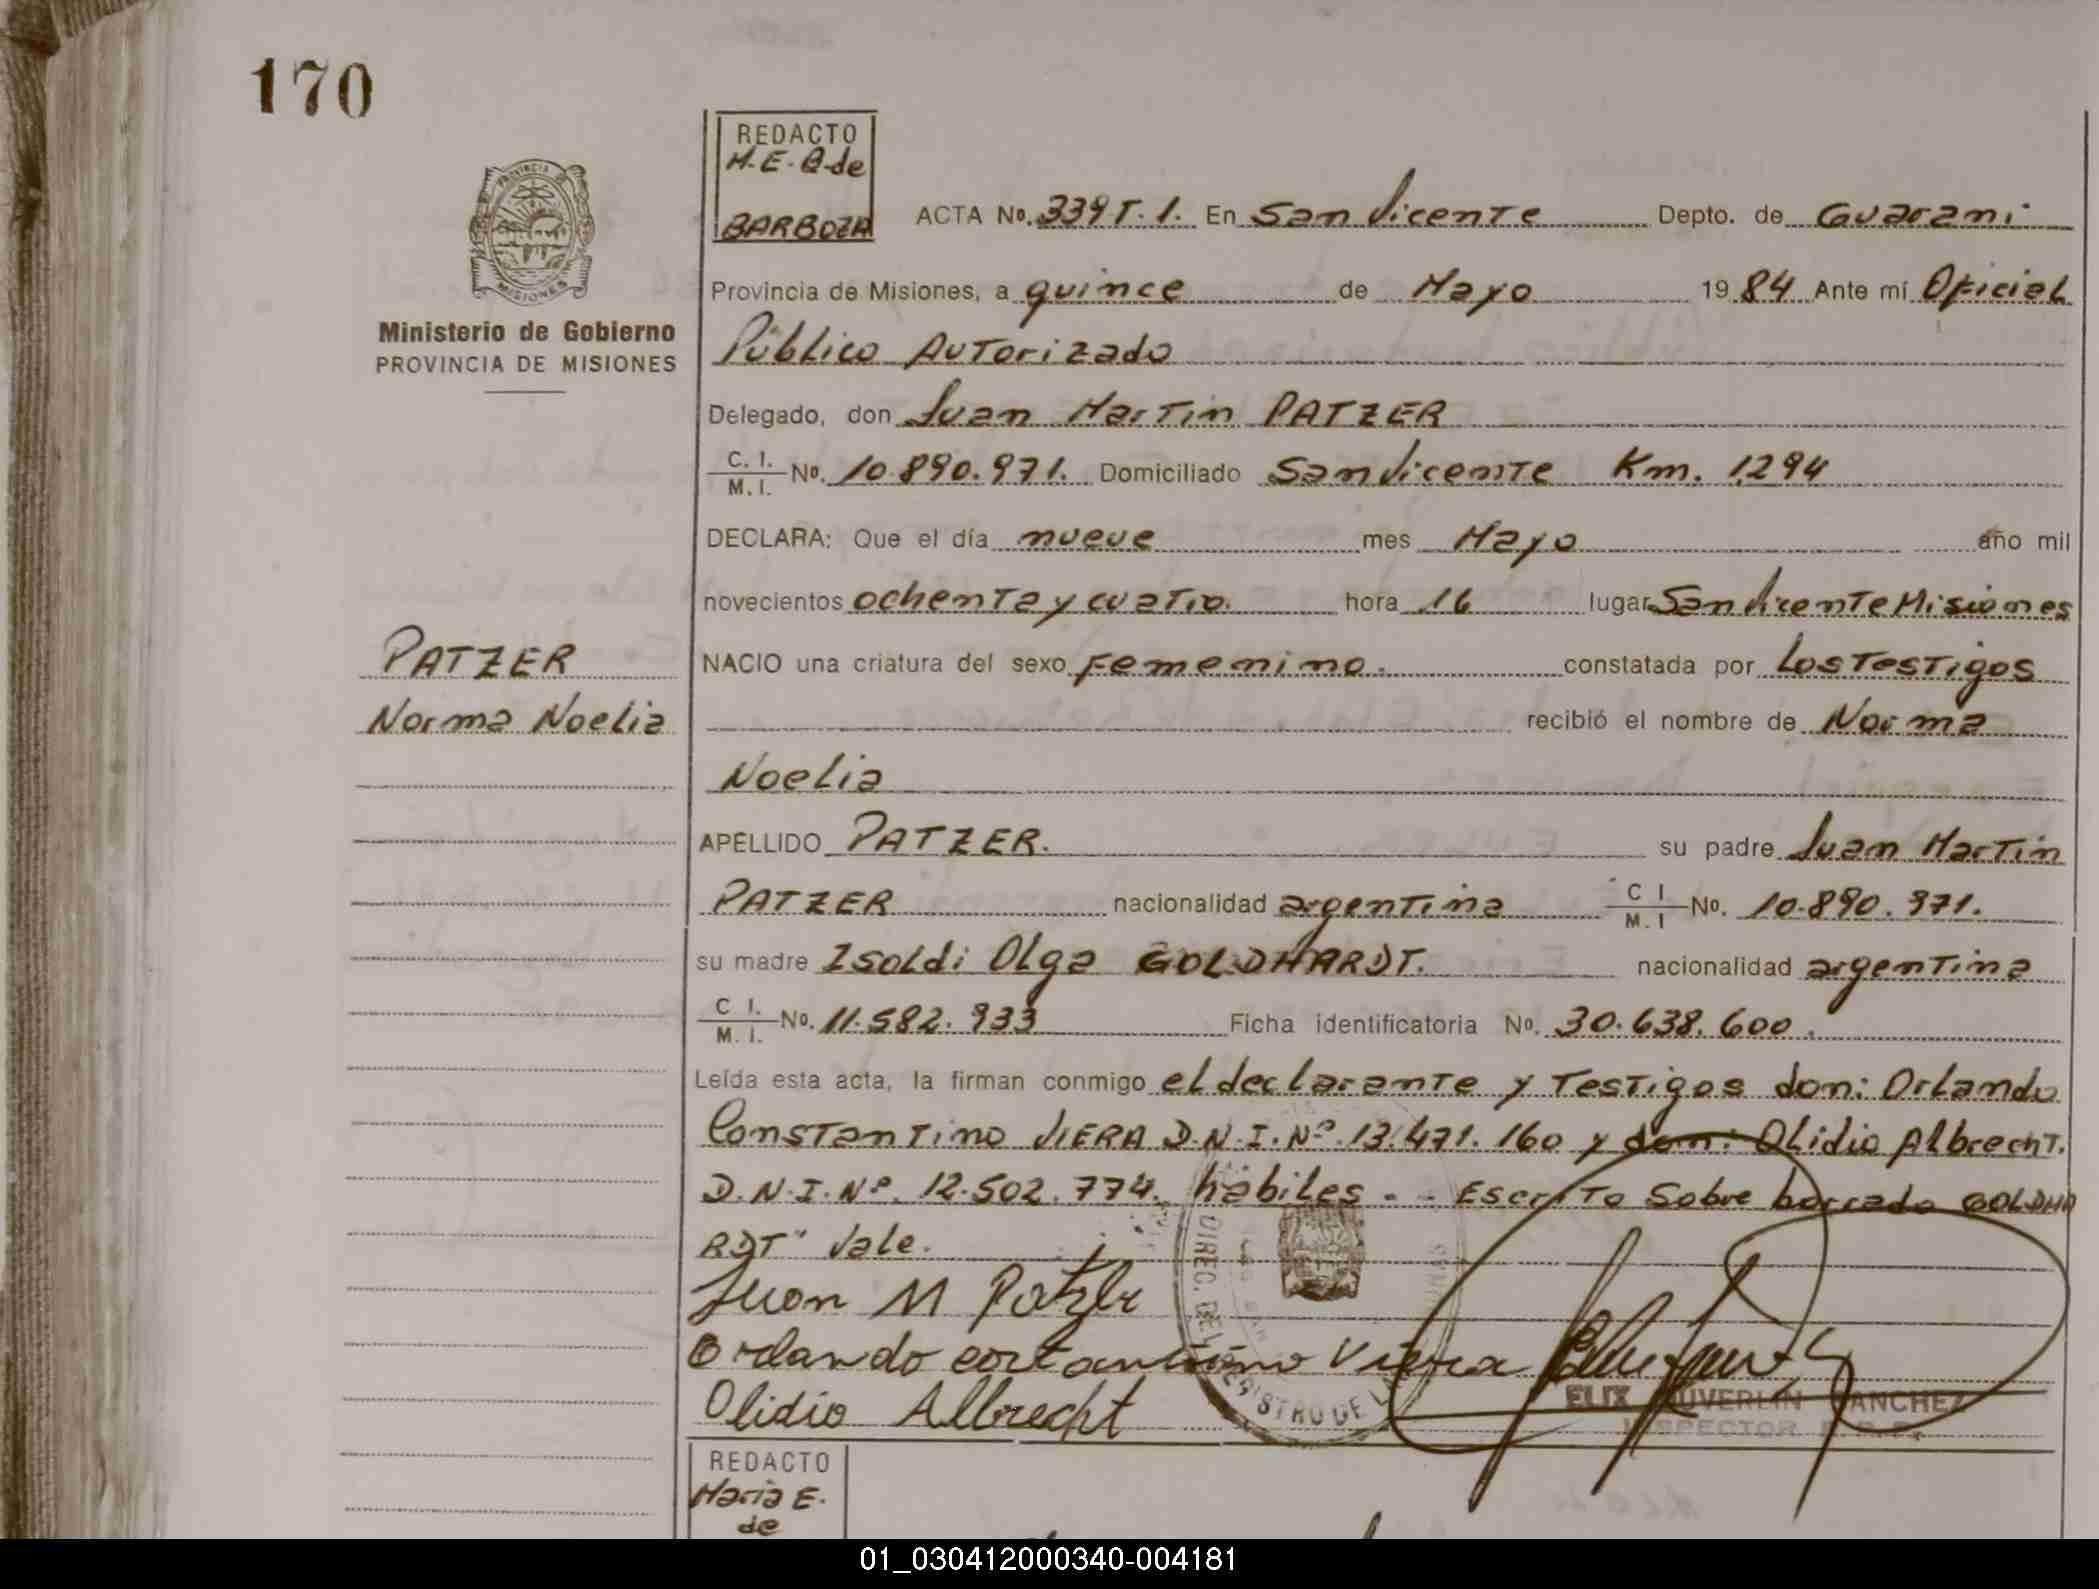 170
REDACTO
M. E. B. de
BARBOZA
PROVINCIA DE
MISIONES
Ministerio de Gobierno
PROVINCIA DE MISIONES
ACTA No. 339 T. 1. En San Vicente Depto. de Guarani
Provincia de Misiones, a quince de Mayo 1984 Ante mí Oficial
Público Autorizado
Delegado, don Juan Martin PATZER
C. I. / M. I. No. 10.890.971. Domiciliado San Vicente Km. 1294
DECLARA: Que el día nueve mes Mayo año mil
novecientos ochenta y cuatro. hora 16 lugar San Vicente Misiones
PATZER
Norma Noelia
NACIO una criatura del sexo Femenino. constatada por Los Testigos
recibió el nombre de Norma
Noelia
APELLIDO PATZER. su padre Juan Martin
PATZER nacionalidad argentina C I / M. I No. 10.890.971.
su madre Isoldi Olga GOLDHARDT. nacionalidad argentina
C I. / M. I. No. 11.582.933 Ficha identificatoria No. 30.638.600.
Leída esta acta, la firman conmigo el declarante y Testigos don: Orlando
Constantino VIERA D.N.I. Nº. 13.471.160 y don: Olidio Albrecht.
D.N.I. Nº. 12.502.774. hábiles. - Escrito Sobre borrado GOLDHA
RDT" Vale.
Juan M Patzer
Orlando costantino Viera
Olidio Albrecht
DIREC. DEL REGISTRO DE L
SANCHEZ
INSPECTOR
REDACTO
Maria E.
de
01_030412000340-004181